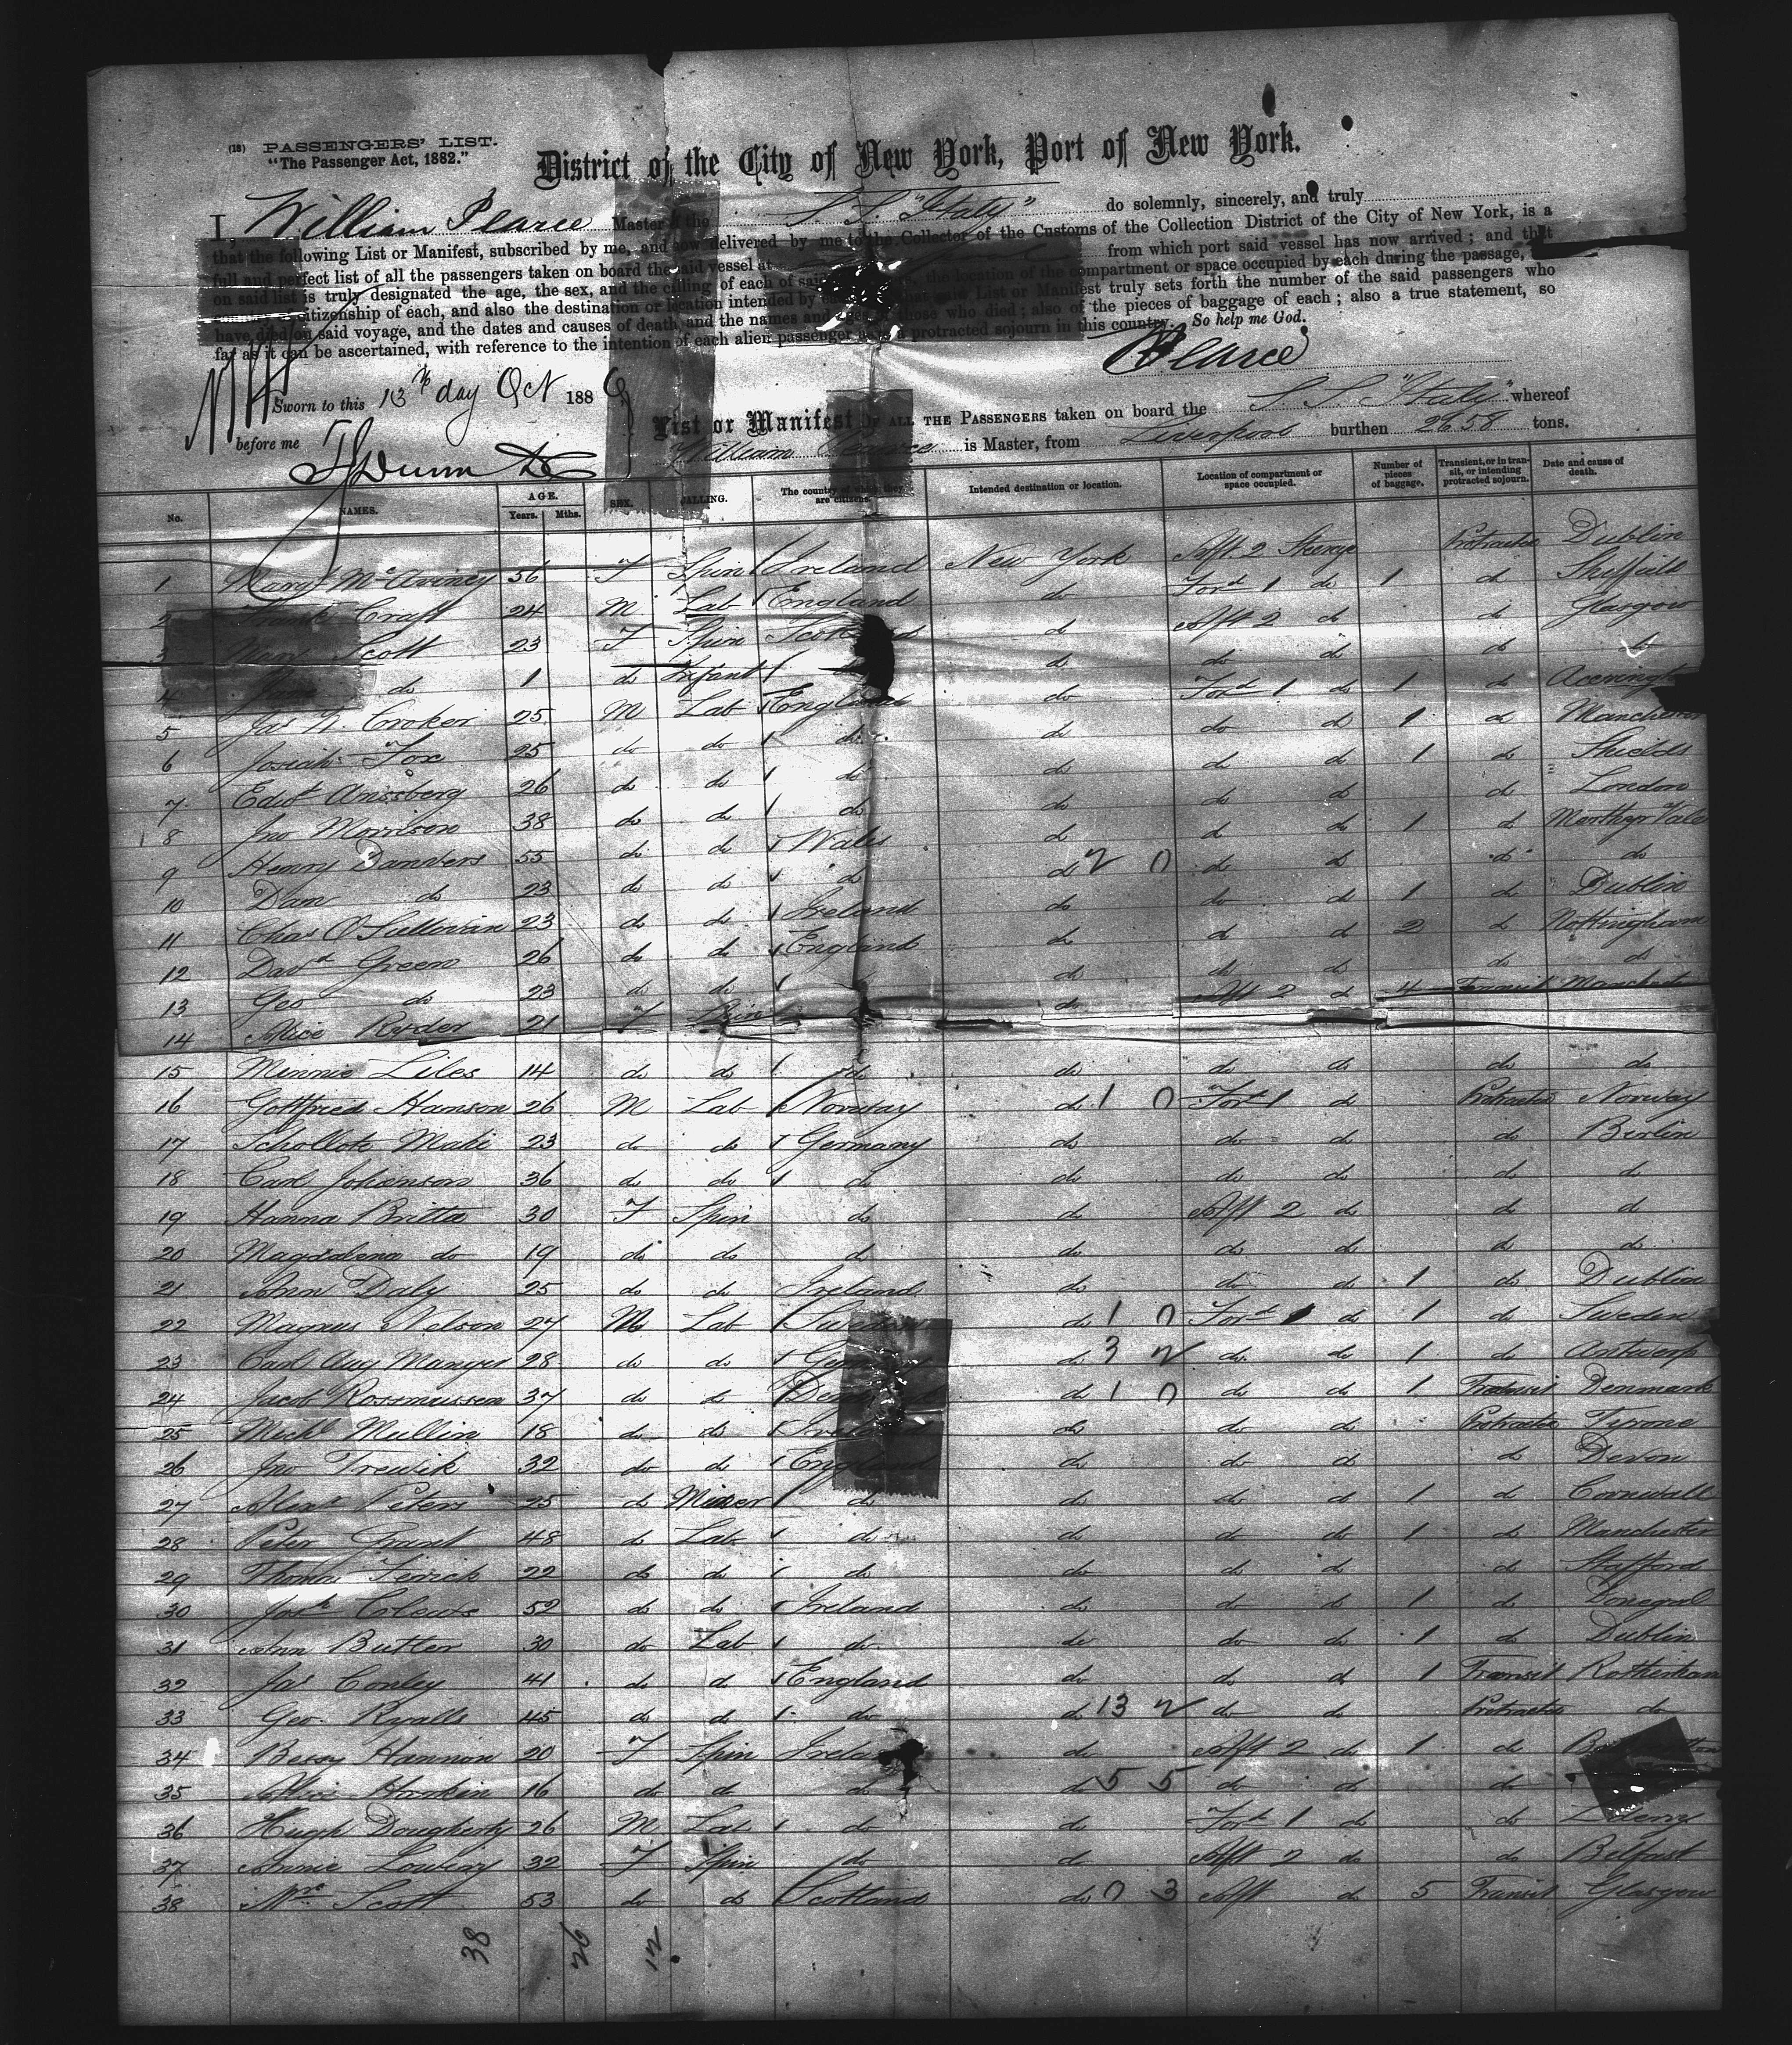 (18) PASSENGERS' LIST.
"The Passenger Act, 1882."
District of the City of New York, Port of New York.
I, William Pearce Master of the S. S. "Italy" do solemnly, sincerely, and truly
that the following List or Manifest, subscribed by me, and now delivered by me to the Collector of the Customs of the Collection District of the City of New York, is a
full and perfect list of all the passengers taken on board the said vessel at from which port said vessel has now arrived; and that
on said list is truly designated the age, the sex, and the calling of each of said the location of the compartment or space occupied by each during the passage,
citizenship of each, and also the destination or location intended by List or Manifest truly sets forth the number of the said passengers who
have died on said voyage, and the dates and causes of death, and the names and ages of those who died; also of the pieces of baggage of each; also a true statement, so
far as it can be ascertained, with reference to the intention of each alien passenger as to a protracted sojourn in this country. So help me God.
Pearce
Sworn to this 13th day Oct 188
before me
List or Manifest OF ALL THE PASSENGERS taken on board the S. S. "Italy" whereof
William Pearce is Master, from Liverpool burthen 2658 tons.
No. NAMES. AGE. Years. Mths. SEX. CALLING. The country of which they are citizens. Intended destination or location. Location of compartment or space occupied. Number of pieces of baggage. Transient, or in transit, or intending protracted sojourn. Date and cause of death.
1 Mary McAviney 56 F Spin Ireland New York Aft 2 Steerge Protracted Dublin
2 Frank Craft 24 M Lab England do Ford 1 do 1 do Sheffield
3 Scott 23 F Spin Scotland do Aft 2 do do Glasgow
4 Jane do 1 do Infant do do do do do do
5 Jas H. Croker 25 M Lab England do Ford 1 do 1 do
6 Josiah Fox 25 do do do do do do 1 do Manchester
7 Edwd Amsberg 26 do do do do do do 1 do Shields
8 Jno Morrison 38 do do do do do do do London
9 Henry Danders 55 do do Wales do do do 1 do Merthyr Vale
10 Dam do 23 do do do do 2 0 do do do do
11 Chas O'Sullivan 23 do do Ireland do do do 1 do Dublin
12 Davd Green 26 do do England do do do 2 do Nottingham
13 Geo do 23 do do do do do do do
14 Alice Ryder 21 F Spin do Aft 2 do 4 Transit Manchester
15 Minnie Liles 14 do do do do do do do do
16 Gottfried Hanson 26 M Lab Norway do 1 0 Ford 1 do Protracted Norway
17 Schollote Maki 23 do do Germany do do do do Berlin
18 Carl Johanson 36 do do do do do do do do
19 Hanna Britta 30 F Spin do do Aft 2 do do do
20 Magdalena do 19 do do do do do do do do
21 Ann Daly 25 do do Ireland do do do 1 do Dublin
22 Magnus Nelson 27 M Lab Sweden do 1 0 Ford 1 do 1 do Sweden
23 Carl Aug Manyes 28 do do do 3 2 do do 1 do Antwerp
24 Jacob Rossmussen 37 do do do 1 0 do do 1 Transit Denmark
25 Michl Mullin 18 do do Ireland do do do Protracted Tyrone
26 Jno Trewik 32 do do England do do do do Devon
27 Alext Peters 25 do Miner do do do do 1 do Cornwall
28 Peter Grant 48 do Lab do do do do 1 do Manchester
29 22 do do do do do do do Stafford
30 52 do do Ireland do do do 1 do Donegal
31 John Butler 30 do Lab do do do do 1 do Dublin
32 Jas Conley 41 do do England do do do 1 Transit Rotherham
33 Geo. Ryalls 45 do do do do 13 2 do do Protracted do
34 Bessy Hannon 20 F Spin Ireland do Aft 2 do 1 do
35 Alice Hoskin 16 do do do do 5 5 do do do
36 Hugh Dougherty 26 M Lab do do Ford 1 do do
37 Annie Lowery 32 F Spin do do Aft 2 do do Belfast
38 Mrs Scott 53 do do Scotland do 0 3 Aft do 5 Transit Glasgow
38 26 12